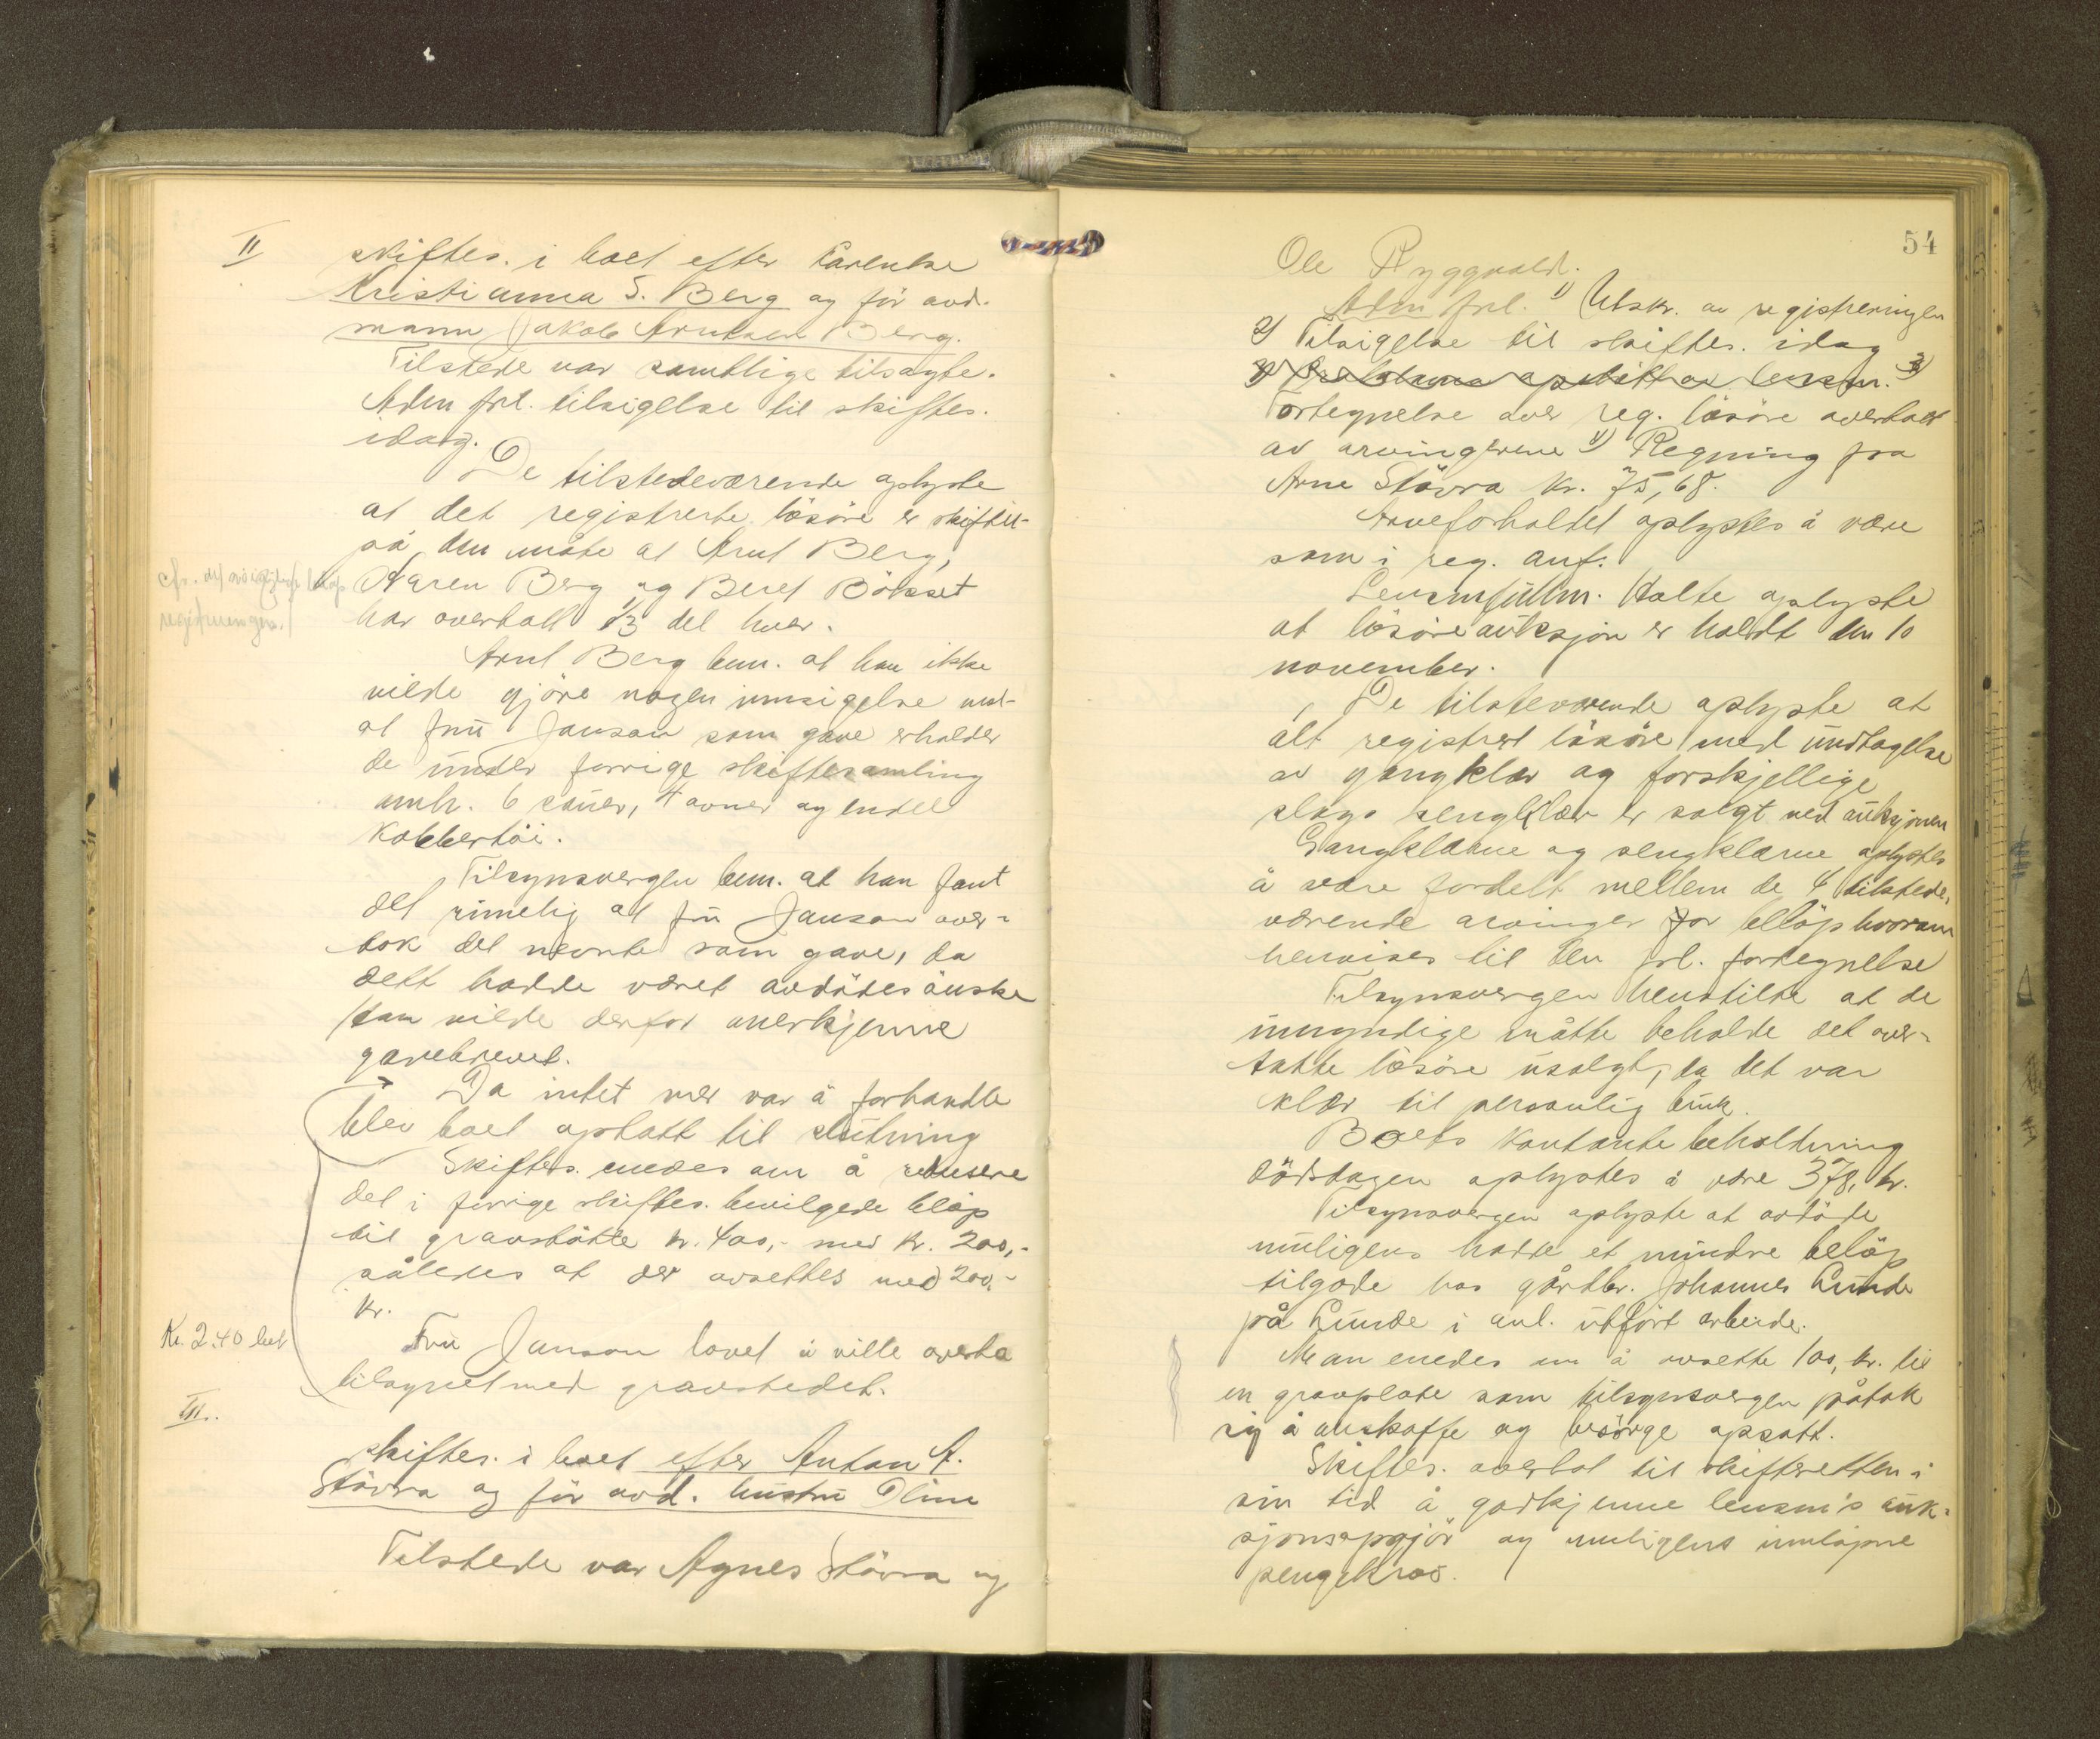 II
skiftes. i boet efter
Kristianna S. Berg og før avd.
mann Jakob Arntsen Berg.
Tilstede var samtlige tilsagte.
Adm frl. tilsigelse til skiftes.
idag.
De tilstedeværende oplyste
at det registrerte løsöre er skiftet
på den måte at Arnt Berg,
Karen Berg og Beret Bökset
har overtatt 1/3 del hver.
Arnt Berg bem. at han ikke
vilde gjöre nogen innsigelse mot
at fru Janson som gave erholder
de under forrige skiftesamling
omh. 6 sauer, 4 ovner og endel
Kobbertöi.
Tilsynsvergen bem. at han fant
det rimelig at fru Janson over-
tok det nevnte som gave, da
dett hadde været avdödes önske
Han vilde derfor anerkjenne
gavebrevet.
Da intet mer var å forhandle
blev boet optatt til slutning
Skiftes. enedes om å redusere
det i forrige skiftes. bevilgede beløp
til gravstötte kr. 400,- med kr. 200,-
således at der avsettes med 200,-
kr.
Kr. 2.40 bet
Fru Janson lovet å ville overta
tilsynet med gravstedet.
III.
Skiftes. i boet efter Anton A.
Stövra og før avd. hustru Oline
Tilstede var Agnes Stövra og
54
Ole Ryggvold.
Adm frl. 1) Utskr. av registreringen
2) Tilsigelse til skiftes. idag
3)
Fortegnelse over reg. lösöre overtatt
av arvingerne 4) Regning fra
Arne Stövra kr. 75,68.
Arveforholdet oplystes å være
som i reg. anf.
Lensmfullm. Holte oplyste
at lösöreauksjon er holdt den 10
november.
De tilsteværende oplyste at
alt registrert lösöre med undtagelse
av gangklær og forskjellige
slags sengklær er solgt ved auksjonen
Gangklærne og sengklærne oplystes
å være fordelt mellem de 4 tilstede-
værende arvinger for beløp hvorom
henvises til den frl. fortegnelse
Tilsynsvergen henstilte at de
umyndige måtte beholde det over-
tatte lösöre usolgt, da det var
klær til personlig bruk.
Boets kontante beholdning
dödsdagen oplystes å være 378, kr.
Tilsynsvergen oplyste at avdöde
muligens hadde et mindre belöp
tilgode hos gårdbr. Johannes Lunde
på Lunde i anl. utfört arbeide.
Man enedes om å avsette 100, kr. til
en gravplate som tilsynsvergen påtok
sig å anskaffe og besörge opsatt.
Skiftes. overlot til skifteretten i
sin tid å godkjenne lensm's auk-
sjonsopgjör og muligens innlöpne
pengekrav.